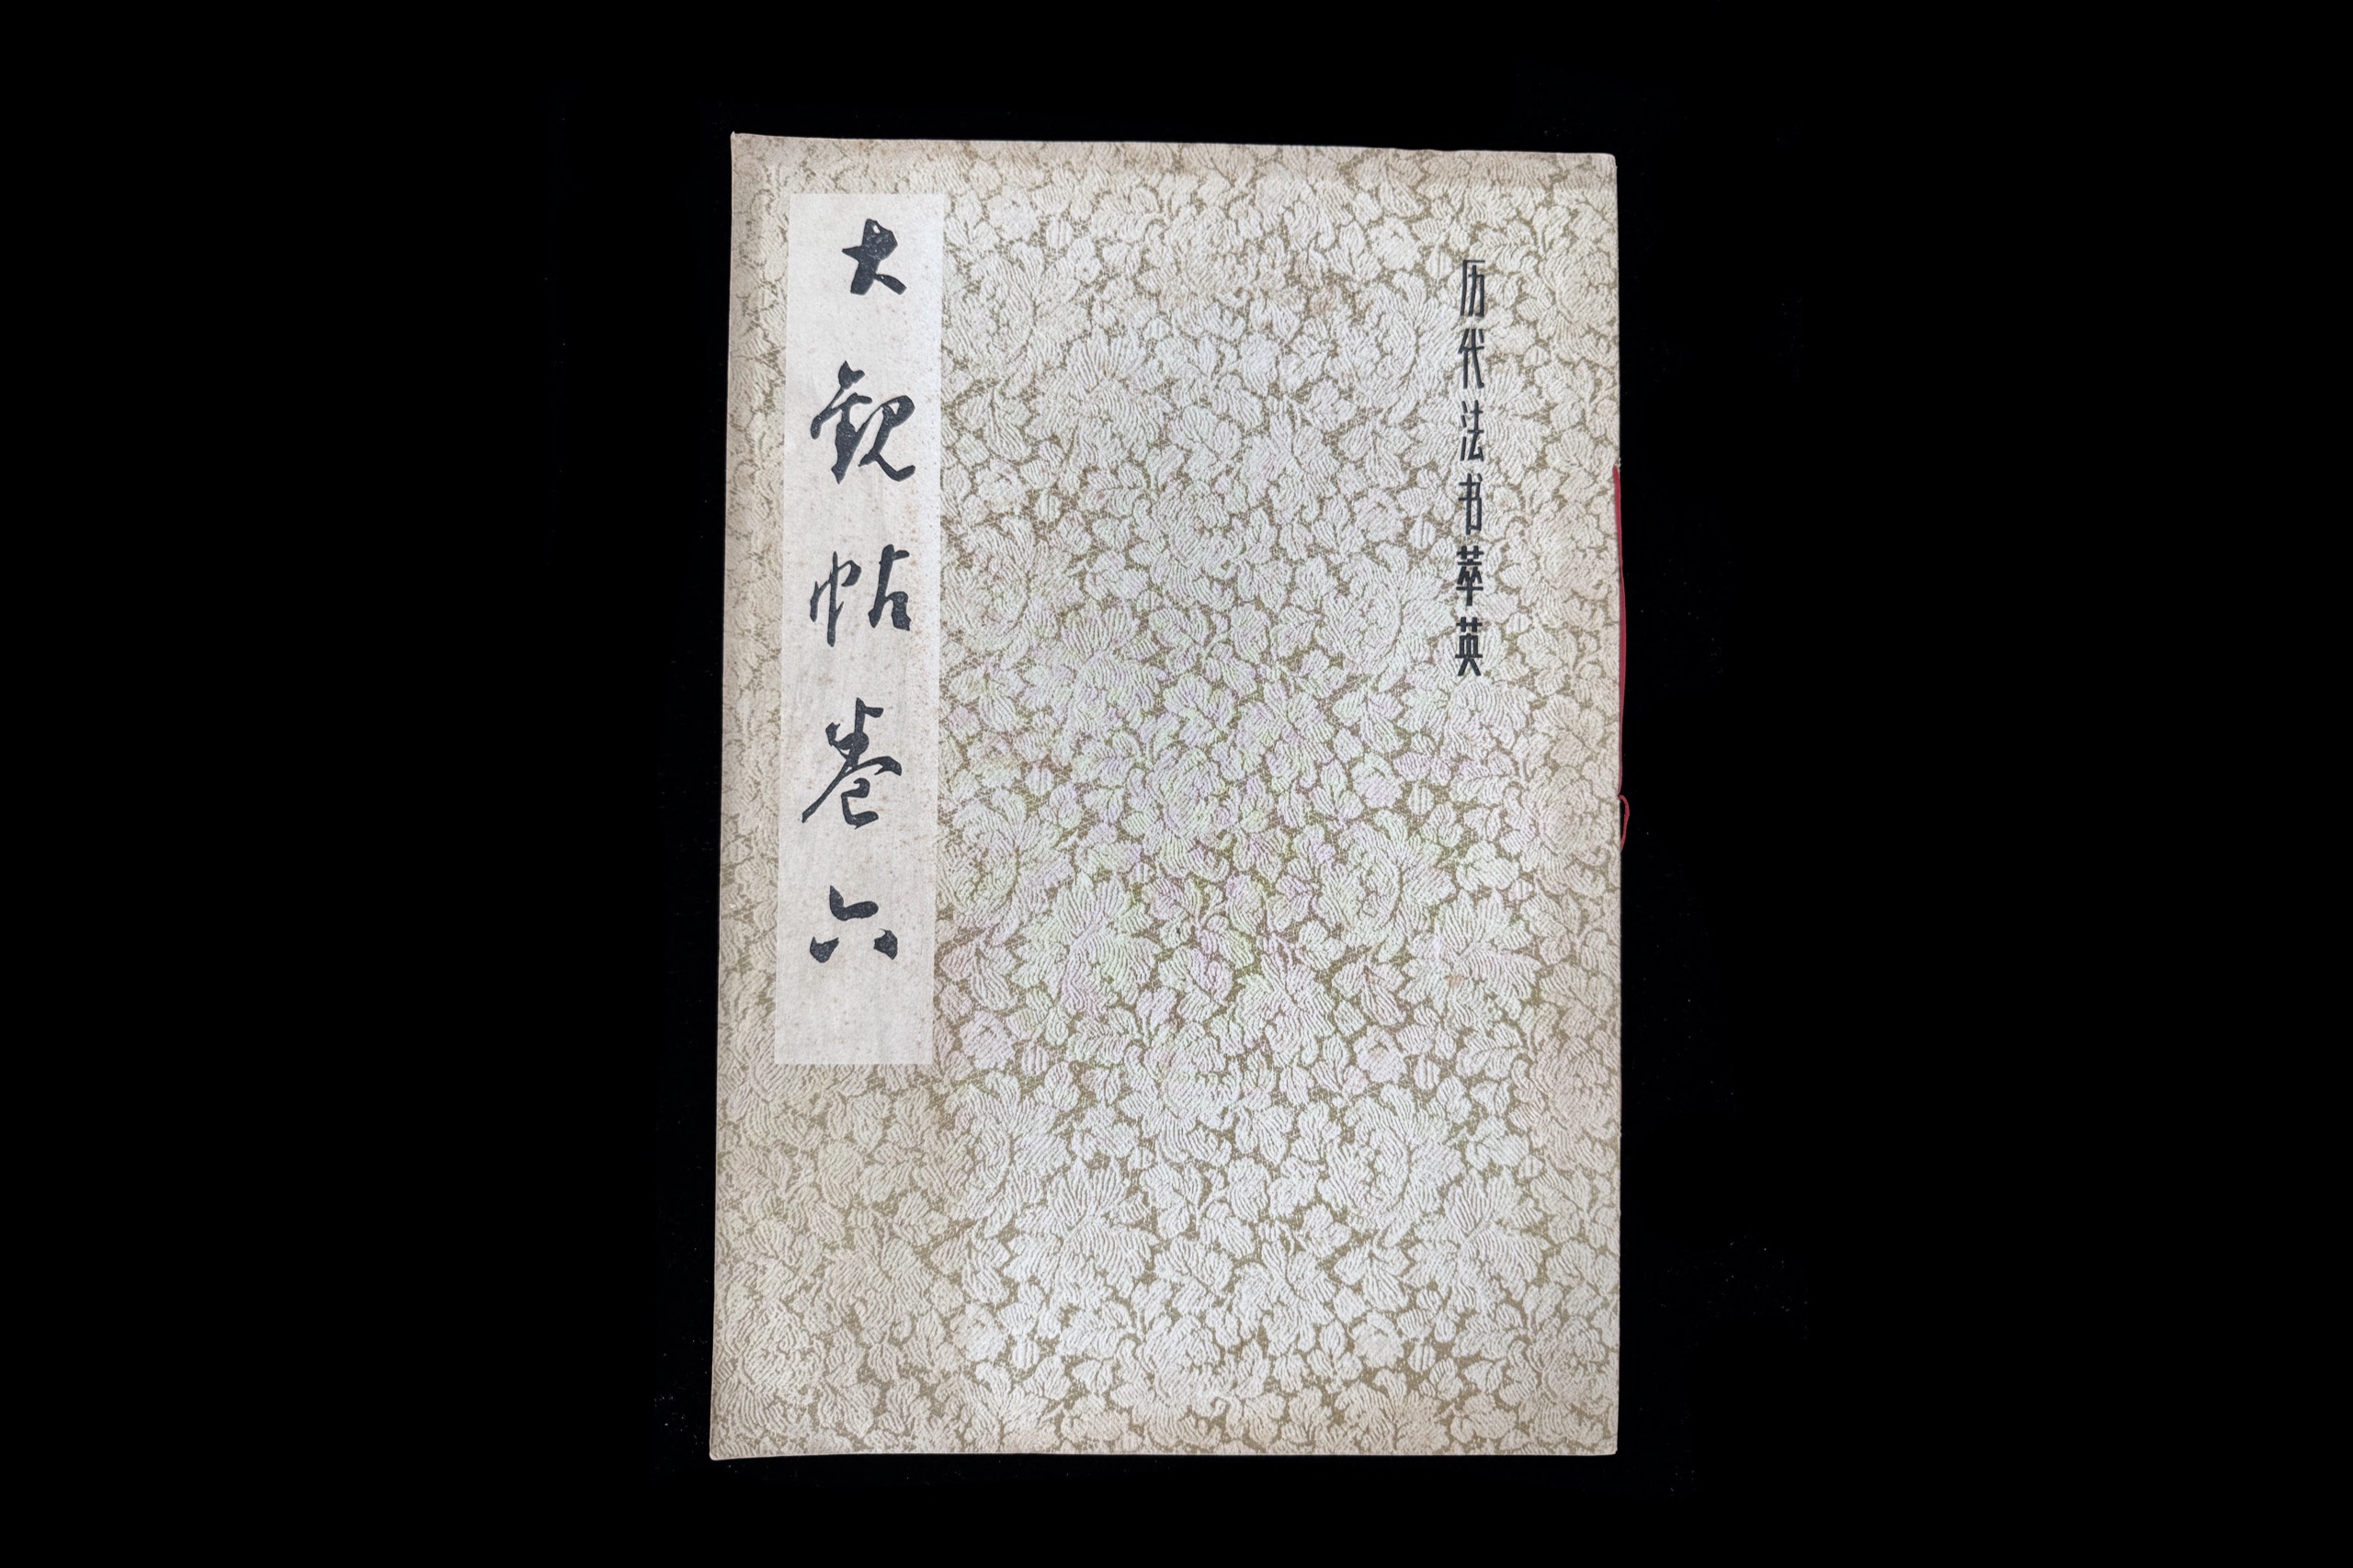 历代法书萃英
大观帖卷六